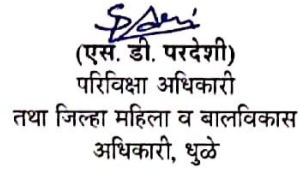 (एस. डी. परदेशी)
परिविक्षा अधिकारी
तथा जिल्हा महिला व बालविकास
अधिकारी, धुळे